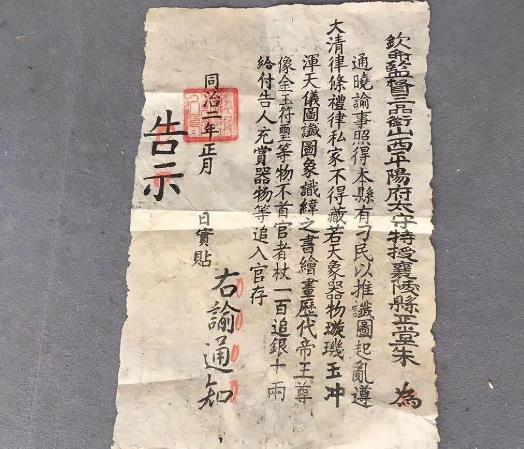 欽命監督三品銜山西平陽府太守特授襄陵縣正堂朱 為
通曉諭事照得本縣有刁民以推讖圖起亂遵
大清律條禮律私家不得藏若天象器物璇璣玉冲
渾天儀圖讖圖象讖緯之書繪畫歷代帝王尊
像金玉符璽等物不首官者杖一百追銀十兩
給付告人充賞器物等追入官存
右諭通知
同治二年正月 日實貼
告示